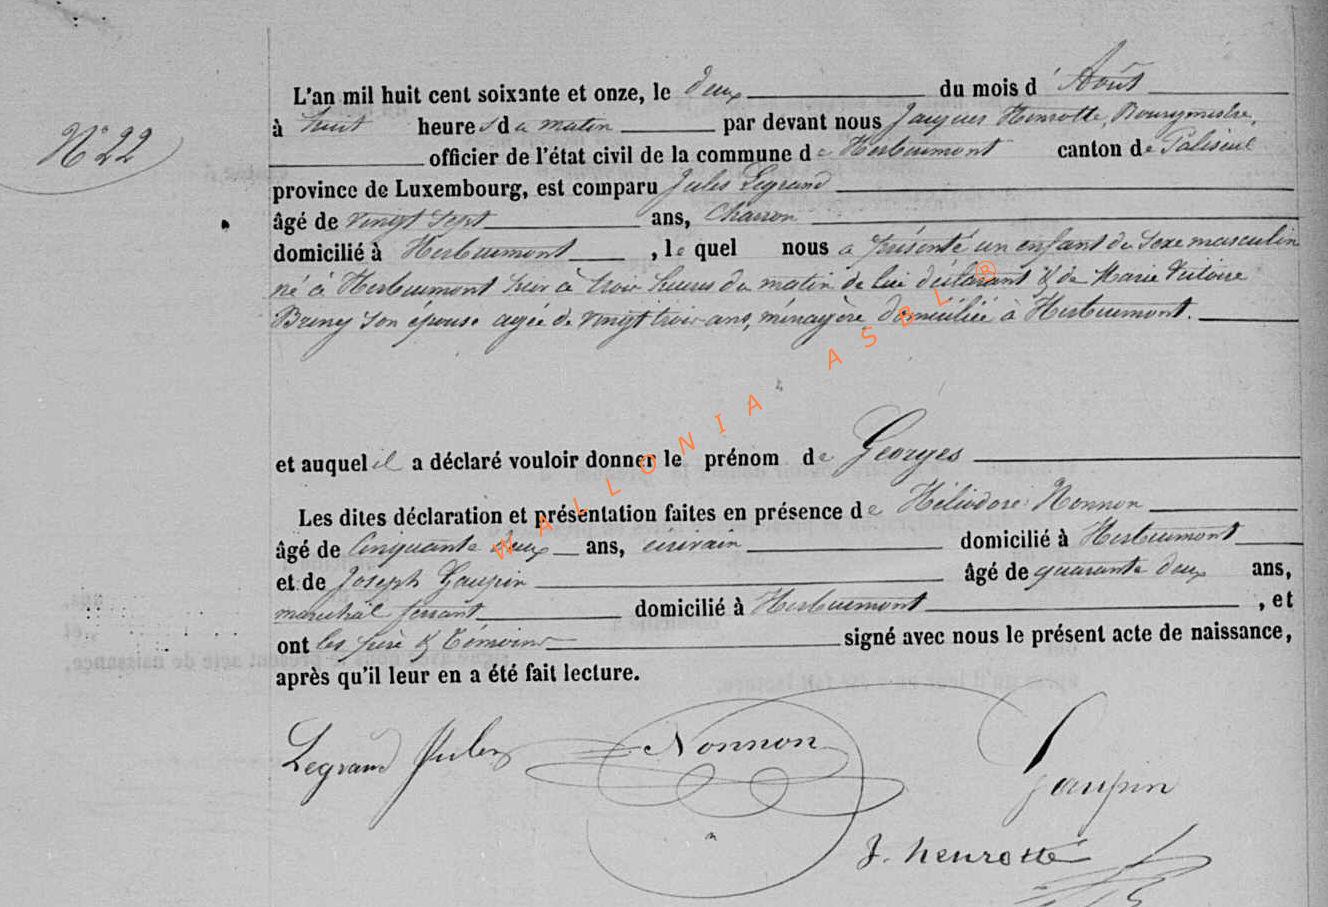 N° 22
L'an mil huit cent soixante et onze, le deux du mois d'Août
à huit heures du matin par devant nous Jacques Henrotte, Bourgmestre,
officier de l'état civil de la commune de Herbeumont canton de Paliseul
province de Luxembourg, est comparu Jules Legrand
âgé de vingt sept ans, Charron
domicilié à Herbeumont, le quel nous a présenté un enfant du sexe masculin
né à Herbeumont hier à trois heures du matin de lui déclarant & de Marie Victoire
son épouse agée de vingt trois ans, ménagère domiciliée à Herbeumont.
et auquel il a déclaré vouloir donner le prénom de Georges
Les dites déclaration et présentation faites en présence de Héliodore Nonnon
âgé de Cinquante deux ans, écrivain domicilié à Herbeumont
et de Joseph Gaupin âgé de quarante deux ans,
maréchal ferrant domicilié à Herbeumont, et
ont les père & témoins signé avec nous le présent acte de naissance,
après qu'il leur en a été fait lecture.
Legrand Jules Nonnon Gaupin
J. henrotte
WALLONIA ASBL ®